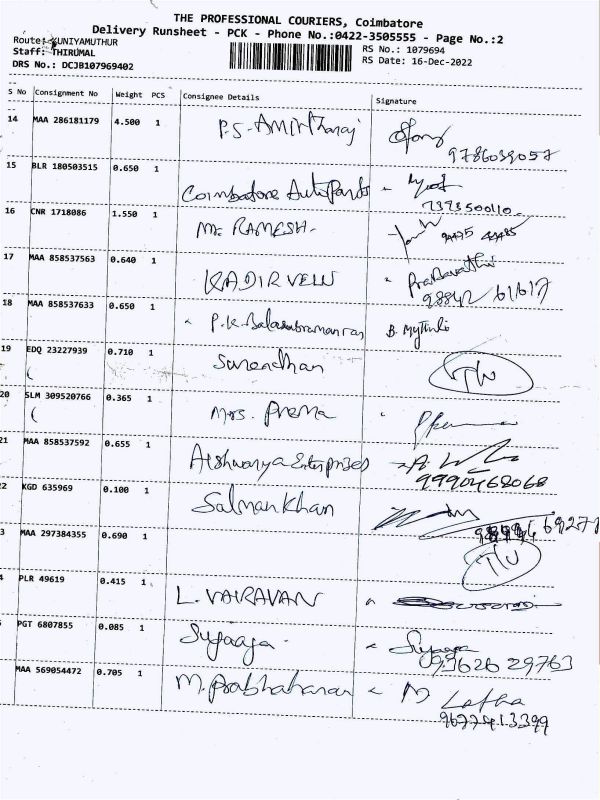 THE PROFESSIONAL COURIERS, Coimbatore
Delivery Runsheet - PCK - Phone No.:0422-3505555 - Page No.:2
Route: KUNIYAMUTHUR
Staff: THIRUMAL
DRS No.: DCJB107969402
RS No.: 1079694
RS Date: 16-Dec-2022
S No Consignment No Weight PCS Consignee Details Signature
14 MAA 286181179 4.500 1 P.S-Amirtharaj
9786039057
15 BLR 180503515 0.650 1 Coimbatore AutoParts
7373500110
16 CNR 1718086 1.550 1 Mr. RAMESH.
17 MAA 858537563 0.640 1 KADIRVELU
98842 61617
18 MAA 858537633 0.650 1 P.K. Balasubramaniyan B. Mythili
19 EDQ 23227939 0.710 1 Surendhan
20 SLM 309520766 0.365 1 Mrs. Prema
21 MAA 858537592 0.655 1 Aishwarya Enterprises
9990468068
2 KGD 635969 0.100 1 Salman Khan
3 MAA 297384355 0.690 1
4 PLR 49619 0.415 1 L. VAIRAVAN
PGT 6807855 0.085 1
93626 29763
MAA 569054472 0.705 1 M. Prabhaharan M Latha